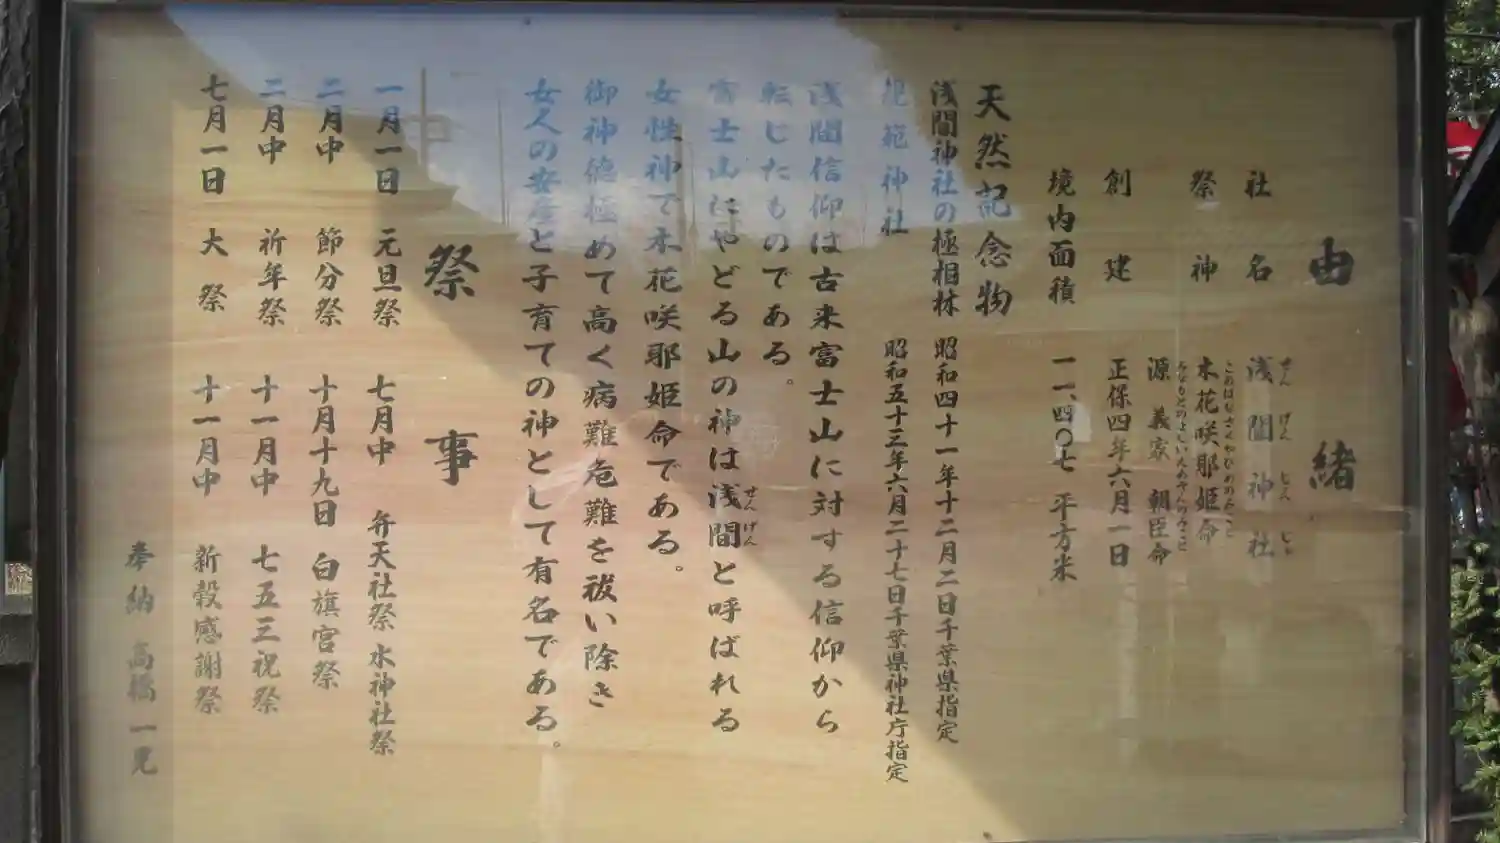 由緒
社名 浅間神社
せんげんじんじゃ
祭神 木花咲耶姫命
このはなさくやひめのみこと
源義家朝臣命
みなもとのよしいえあそんのみこと
創建 正保四年六月一日
境内面積 一一、四〇七 平方米
天然記念物
浅間神社の極相林 昭和四十一年十二月二日千葉県指定
規範神社 昭和五十三年六月二十七日千葉県神社庁指定
浅間信仰は古来富士山に対する信仰から
転じたものである。
富士山にやどる山の神は浅間と呼ばれる
せんげん
女性神で木花咲耶姫命である。
御神徳極めて高く病難危難を祓い除き
女人の安産と子育ての神として有名である。
祭事
一月一日 元旦祭 七月中 弁天社祭 水神社祭
二月中 節分祭 十月十九日 白旗宮祭
二月中 祈年祭 十一月中 七五三祝祭
七月一日 大祭 十一月中 新穀感謝祭
奉納 高橋一